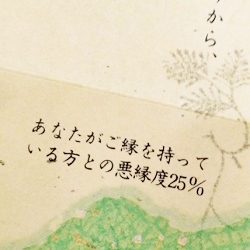 から、
あなたがご縁を持って
いる方との悪縁度25%